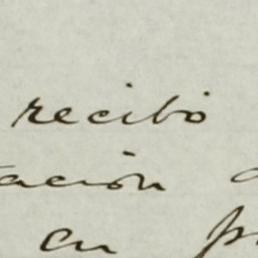 recibo
tación
en